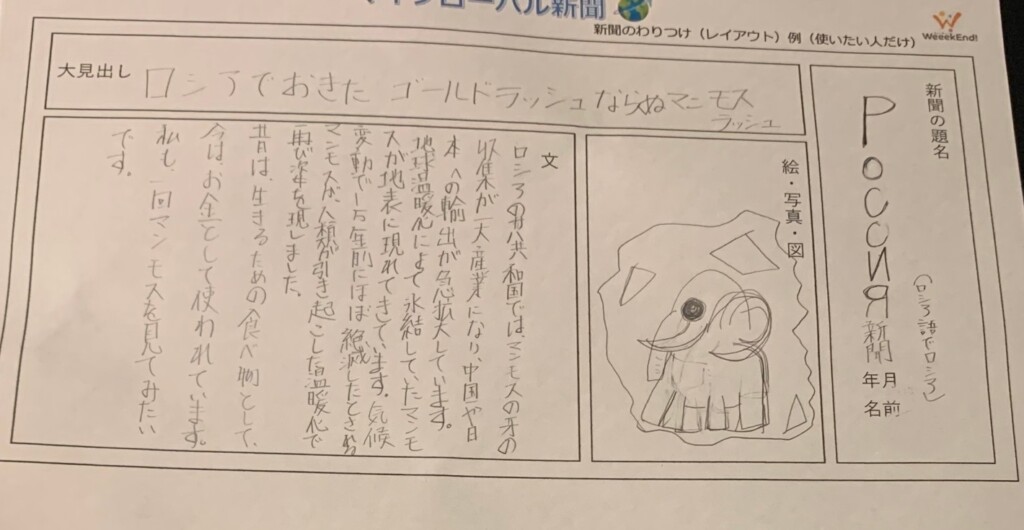 マイグローバル新聞
新聞のわりつけ（レイアウト）例（使いたい人だけ）
WeeekEnd!
新聞の題名
Россия新聞
（ロシア語でロシア）
年 月
名前
大見出し
ロシアでおきた ゴールドラッシュならぬマンモス
ラッシュ
絵・写真・図
文
ロシアの共和国では、マンモスの牙の
収集が一大産業になり、中国や日
本への輸出が急拡大しています。
地球温暖化によって氷結していたマンモ
スが地表に現れてきています。気候
変動で一万年前にほぼ絶滅したとされる
マンモスが、人類が引き起こした温暖化で
再び姿を現しました。
昔は、生きるための食べ物として、
今は、お金として使われています。
私も、一回マンモスを見てみたい
です。